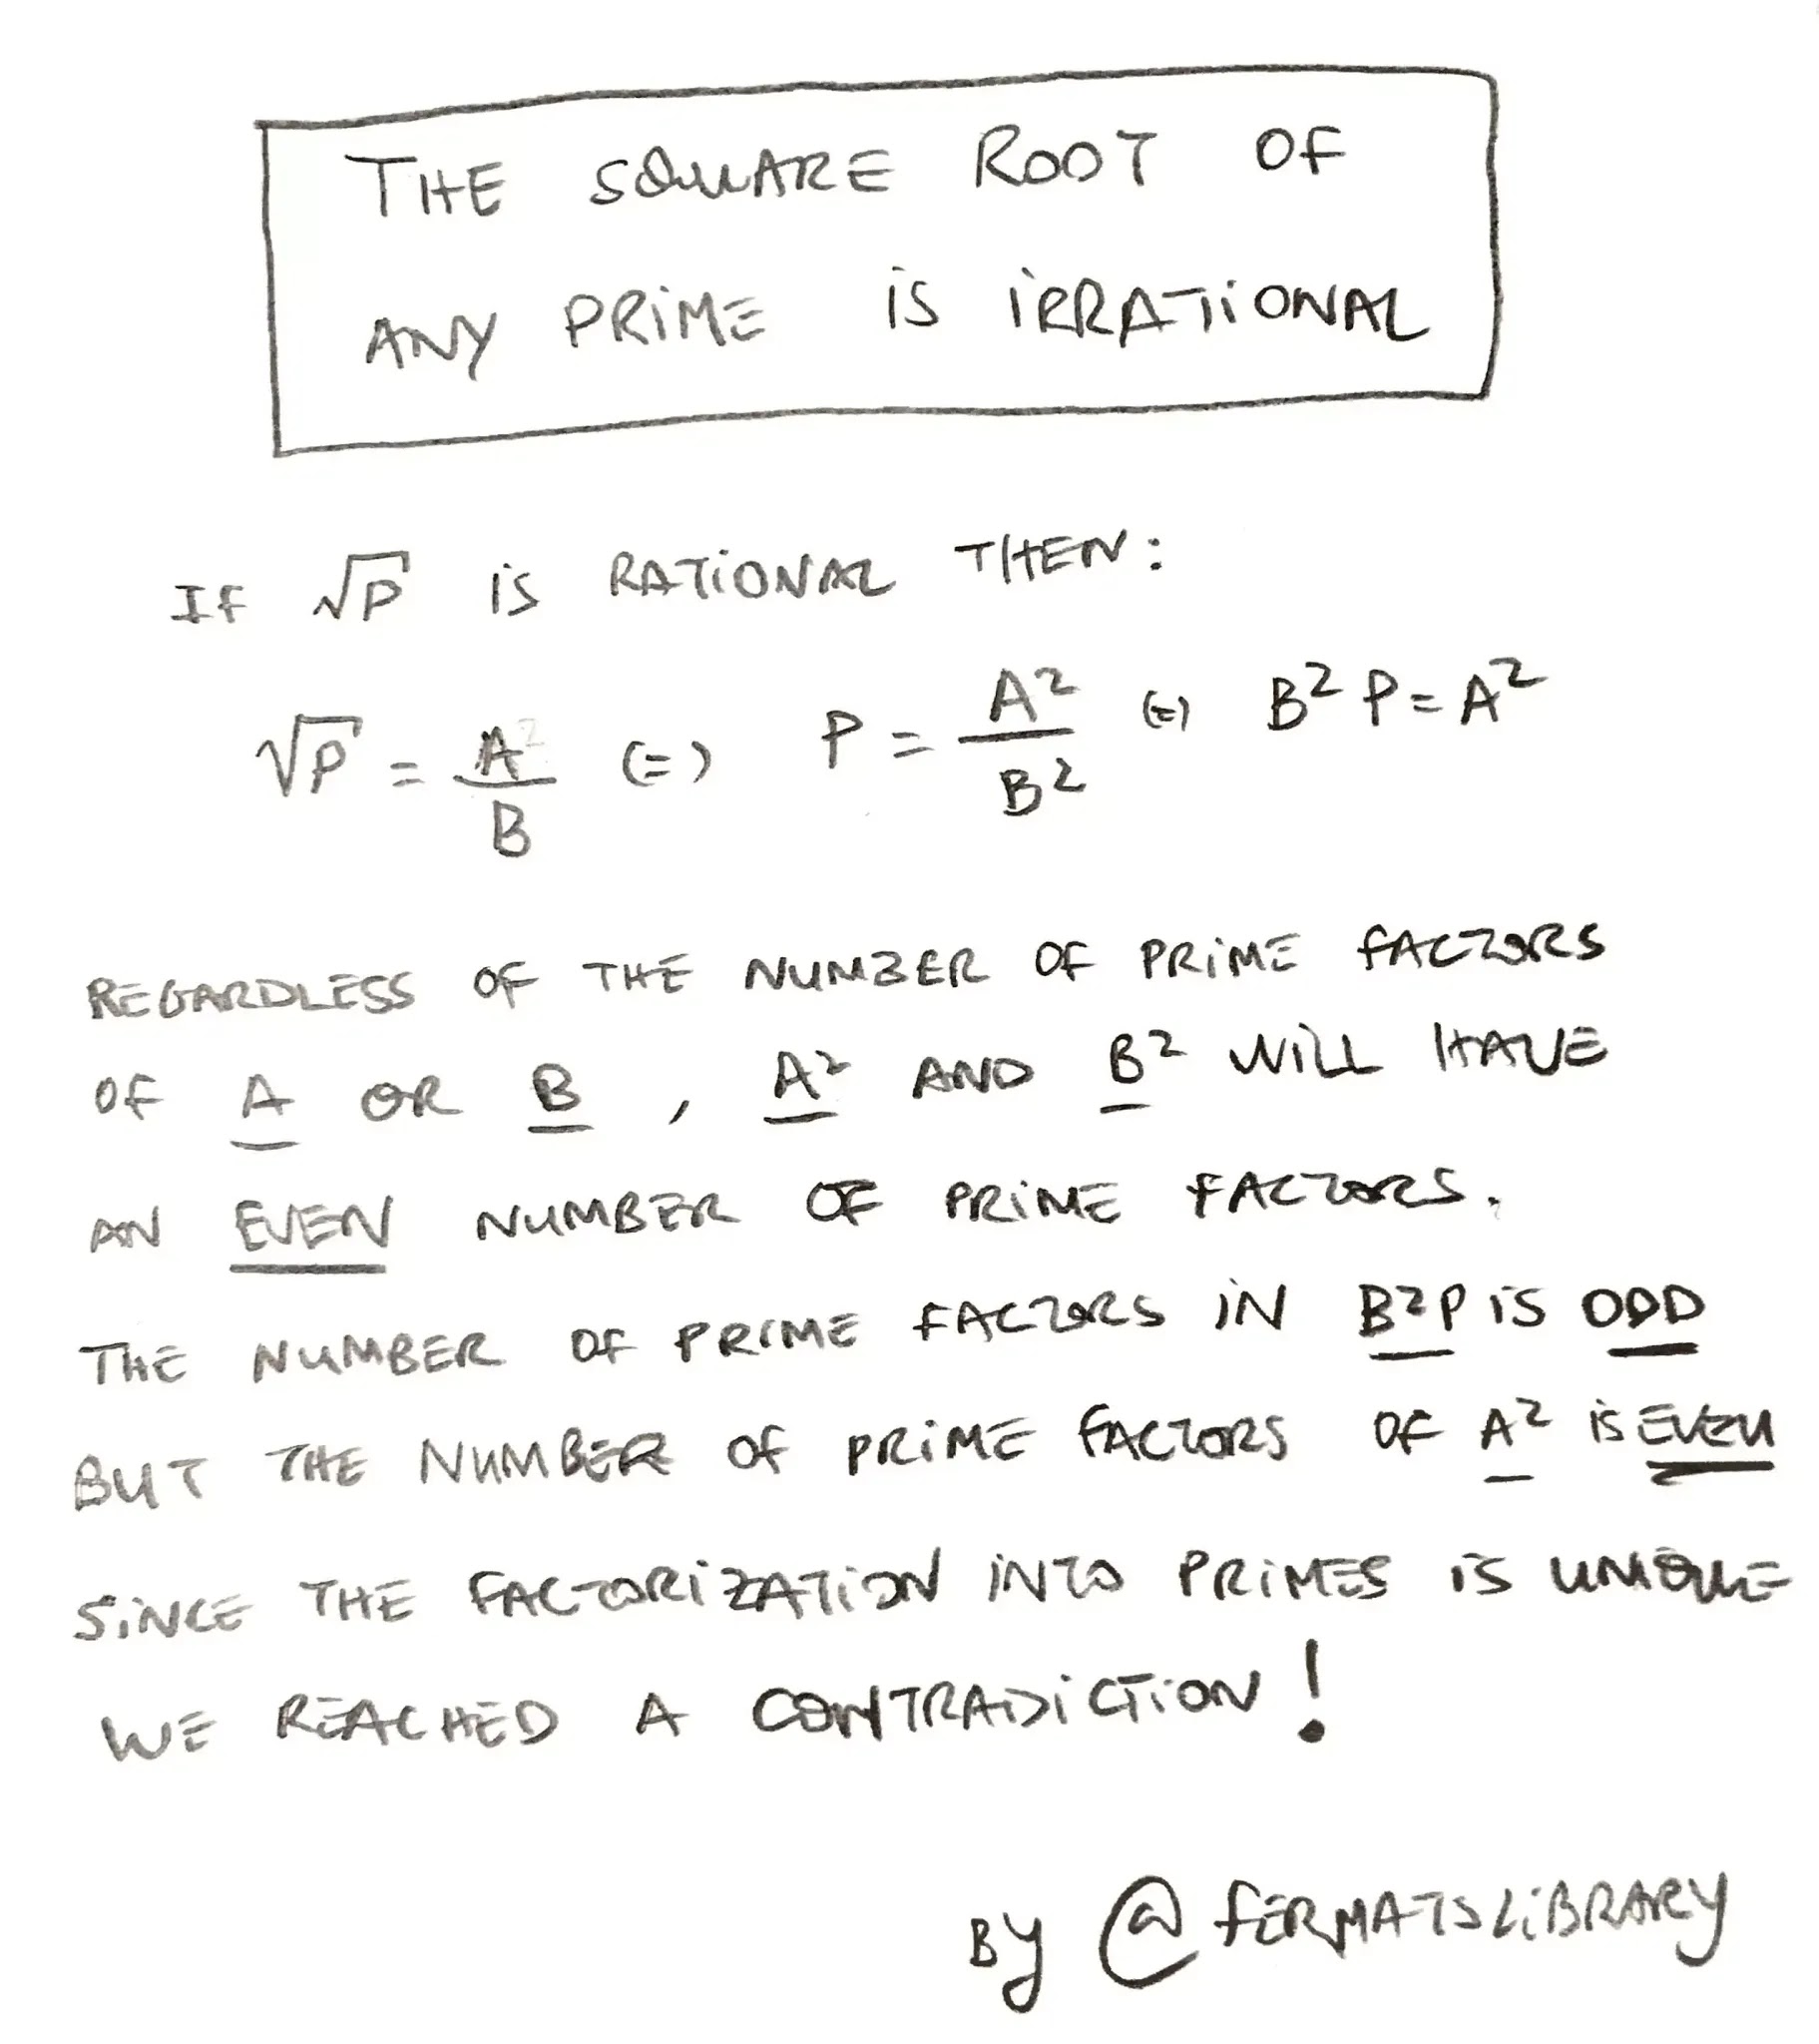 THE SQUARE ROOT OF
ANY PRIME IS IRRATIONAL
IF √P IS RATIONAL THEN:
√P = A/B (=) P = A²/B² (=) B² P = A²
REGARDLESS OF THE NUMBER OF PRIME FACTORS
OF A OR B , A² AND B² WILL HAVE
AN EVEN NUMBER OF PRIME FACTORS.
THE NUMBER OF PRIME FACTORS IN B²P IS ODD
BUT THE NUMBER OF PRIME FACTORS OF A² IS EVEN
SINCE THE FACTORIZATION INTO PRIMES IS UNIQUE
WE REACHED A CONTRADICTION!
BY @FERMATSLIBRARY